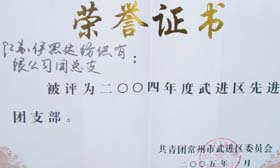 荣誉证书
江苏伊思达纺织有
限公司团总支：
被评为二〇〇四年度武进区先进
团支部。
共青团常州市武进区委员会
二〇〇五年